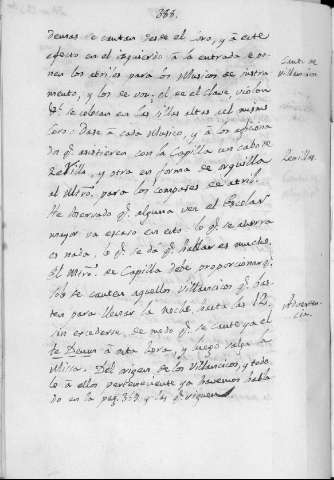 388.
demas se cantan desde el coro, y á este
efecto en el izquierdo á la entrada se po-
nen los atriles para los Musicos de instru-
mento, y los de voz, el de el clave, violon
&c. se colocan en las sillas altas del mismo
coro. Dase á cada Musico, y á los aficiona-
dos q.e asistieren con la Capilla un cabo de
velilla, y otra en forma de
al Mtro. para los compases de atril.
He observado q.e alguna vez el Escolar
mayor va escaso en esto. lo q.e se ahorra
es nada, lo q.e se da q.e hablar es mucho.
El Mtro. de Capilla debe proporcionar q.e
solo se canten aquellos Villancicos q.e bas-
ten para llenar la noche hasta las 12.
sin excederse, de modo q.e se cante ya el
te Deum á esta hora, y luego salga la
Missa. Del origen de los Villancicos, y todo
lo á ellos perteneciente ya havemos habla-
do en la pag. y las q.e siguen
Villancicos
Velillas.
Adverten-
cia.